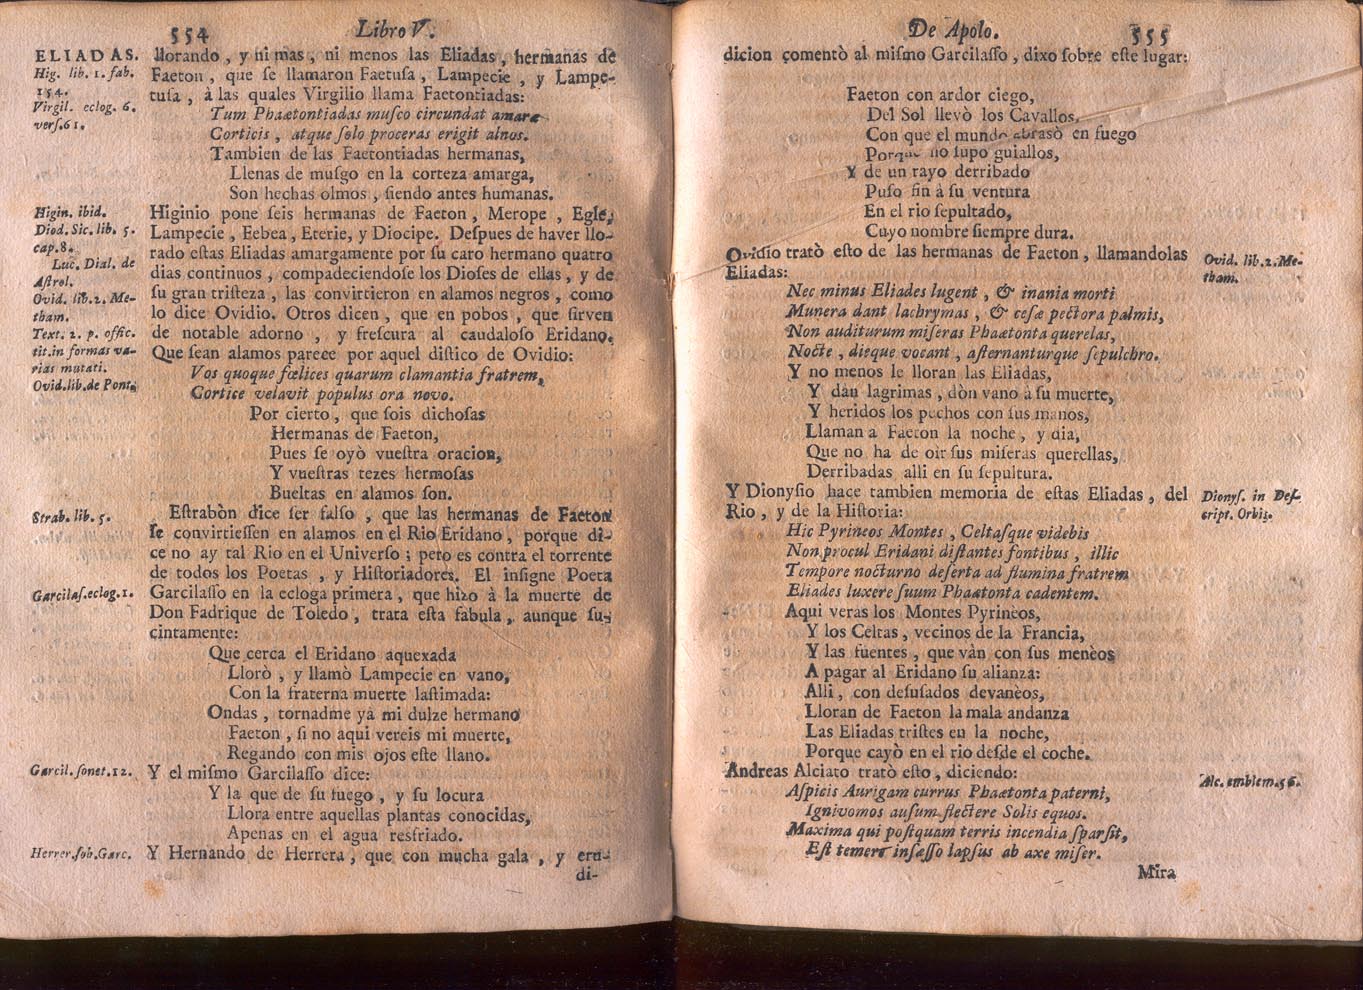 554 Libro V.
ELIADAS.
Hig. lib. 1. fab.
154.
Virgil. eclog. 6.
verſ.61.
Higin. ibid.
Diod. Sic. lib. 5.
cap.8.
Luc. Dial. de
Aſtrol.
Ovid. lib.2. Me-
tham.
Text. 2. p. offic.
tit.in formas va-
rias mutati.
Ovid.lib.de Pont.
Strab. lib. 5.
Garcilaſ.eclog.1.
Garcil. ſonet.12.
Herrer.ſob.Garc.
llorando, y ni mas, ni menos las Eliadas, hermanas de
Faeton, que ſe llamaron Faetuſa, Lampecie, y Lampe-
tuſa, à las quales Virgilio llama Faetontiadas:
Tum Phaëtontiadas muſco circundat amaræ
Corticis, atque ſolo proceras erigit alnos.
Tambien de las Faetontiadas hermanas,
Llenas de muſgo en la corteza amarga,
Son hechas olmos, ſiendo antes humanas.
Higinio pone ſeis hermanas de Faeton, Merope, Egle,
Lampecie, Eebea, Eterie, y Diocipe. Deſpues de haver llo-
rado eſtas Eliadas amargamente por ſu caro hermano quatro
dias continuos, compadeciendoſe los Dioſes de ellas, y de
ſu gran triſteza, las convirtieron en alamos negros, como
lo dice Ovidio. Otros dicen, que en pobos, que ſirven
de notable adorno, y freſcura al caudaloſo Eridano.
Que ſean alamos parece por aquel diſtico de Ovidio:
Vos quoque fœlices quarum clamantia fratrem,
Cortice velavit populus ora novo.
Por cierto, que ſois dichoſas
Hermanas de Faeton,
Pues ſe oyò vueſtra oracion,
Y vueſtras tezes hermoſas
Bueltas en alamos ſon.
Eſtrabòn dice ſer falſo, que las hermanas de Faeton
ſe convirtieſſen en alamos en el Rio Eridano, porque di-
ce no ay tal Rio en el Univerſo; pero es contra el torrente
de todos los Poetas, y Hiſtoriadores. El inſigne Poeta
Garcilaſſo en la ecloga primera, que hizo à la muerte de
Don Fadrique de Toledo, trata eſta fabula, aunque ſu-
cintamente:
Que cerca el Eridano aquexada
Llorò, y llamò Lampecie en vano,
Con la fraterna muerte laſtimada:
Ondas, tornadme yà mi dulze hermano
Faeton, ſi no aqui vereis mi muerte,
Regando con mis ojos eſte llano.
Y el miſmo Garcilaſſo dice:
Y la que de ſu fuego, y ſu locura
Llora entre aquellas plantas conocidas,
Apenas en el agua resfriado.
Y Hernando de Herrera, que con mucha gala, y eru-
di-
De Apolo. 555
dicion comentò al miſmo Garcilaſſo, dixo ſobre eſte lugar:
Faeton con ardor ciego,
Del Sol llevò los Cavallos,
Con que el mundo abrasò en fuego
Porque no ſupo guiallos,
Y de un rayo derribado
Puſo fin à ſu ventura
En el rio ſepultado,
Cuyo nombre ſiempre dura.
Ovidio tratò eſto de las hermanas de Faeton, llamandolas
Eliadas:
Nec minus Eliades lugent, & inania morti
Munera dant lachrymas, & ceſæ pectora palmis,
Non auditurum miſeras Phaëtonta querelas,
Nocte, dieque vocant, aſternanturque ſepulchro.
Y no menos le lloran las Eliadas,
Y dàn lagrimas, dòn vano à ſu muerte,
Y heridos los pechos con ſus manos,
Llaman a Faeton la noche, y dia,
Que no ha de oir ſus miſeras querellas,
Derribadas alli en ſu ſepultura.
Y Dionyſio hace tambien memoria de eſtas Eliadas, del
Rio, y de la Hiſtoria:
Hic Pyrineos Montes, Celtaſque videbis
Non procul Eridani diſtantes fontibus, illic
Tempore nocturno deſerta ad flumina fratrem
Eliades luxere ſuum Phaëtonta cadentem.
Aqui veras los Montes Pyrinèos,
Y los Celtas, vecinos de la Francia,
Y las fuentes, que vàn con ſus menèos
A pagar al Eridano ſu alianza:
Alli, con deſuſados devanèos,
Lloran de Faeton la mala andanza
Las Eliadas triſtes en la noche,
Porque cayò en el rio deſde el coche.
Andreas Alciato tratò eſto, diciendo:
Aſpicis Aurigam currus Phaëtonta paterni,
Ignivomos auſum flectere Solis equos.
Maxima qui poſtquam terris incendia ſparſit,
Eſt temere inſæſſo lapſus ab axe miſer.
Mira
Ovid. lib.2.Me-
tham.
Dionyſ. in Deſ-
cript. Orbis.
Alc. emblem.56.